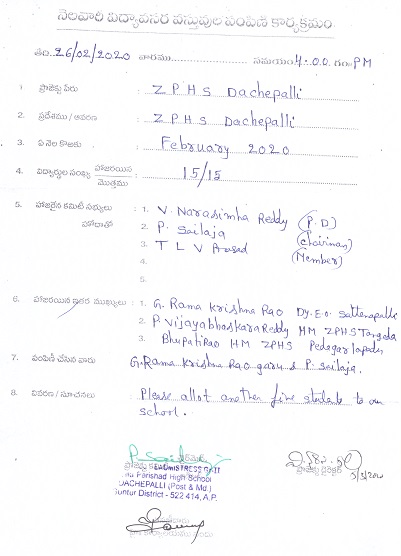 నెలవారి విద్యావసర వస్తువుల పంపిణి కార్యక్రమం
తేది: 26/02/2020 వారము సమయం 4.00 గం. PM
1. ప్రాజెక్టు పేరు : ZPHS Dachepalli
2. ప్రదేశము / ఆవరణ : ZPHS Dachepalli
3. ఏ నెల కొఱకు : February 2020
4. విద్యార్థుల సంఖ్య హాజరయిన / మొత్తము : 15/15
5. హాజరైన కమిటీ సభ్యులు : 1. V. Narasimha Reddy (P.D)
హోదాతో 2. P. Sailaja (Chairman)
3. T L V Prasad (Member)
4.
5.
6. హాజరయిన ఇతర ముఖ్యులు : 1. G. Rama Krishna Rao Dy.E.O. Sattenapalli
2. P Vijayabhaskara Reddy HM ZPHS Tangeda
3. Bhupati Rao HM ZPHS Pedagarlapadu
7. పంపిణీ చేసిన వారు : G. Rama Krishna Rao garu & P. Sailaja.
8. వివరణ / సూచనలు : Please allot another five students to our
school.
P. Sailaja
ప్రాజెక్టు డైరెక్టర్
Parishad High School
DACHEPALLI (Post & Md.)
Guntur District - 522 414, A.P.